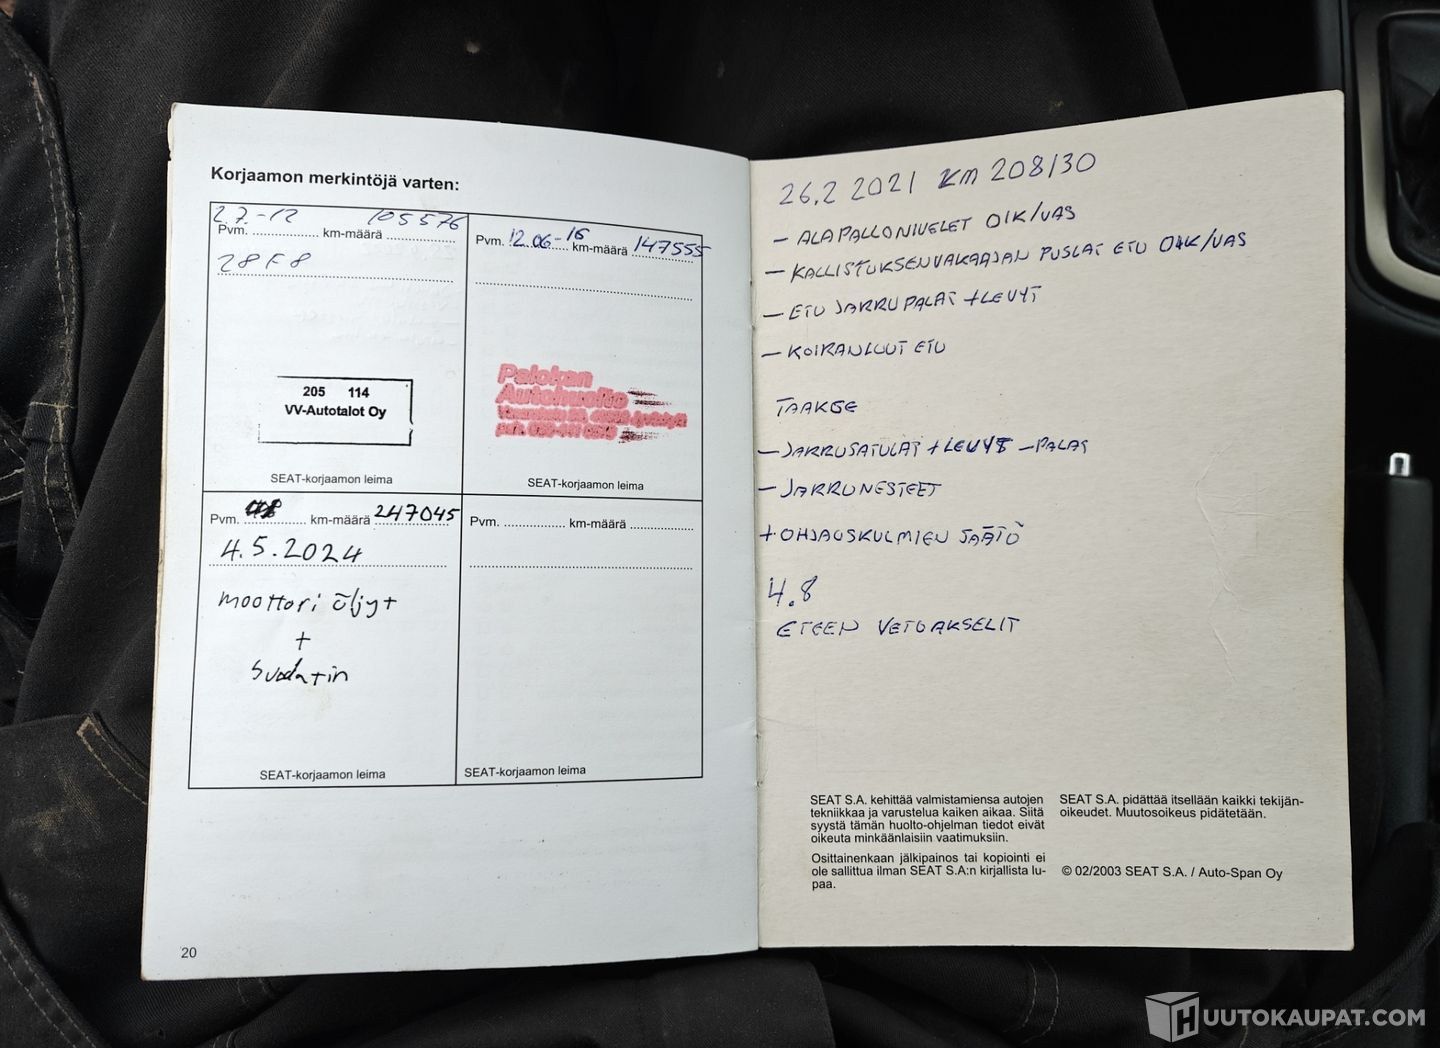 Korjaamon merkintöjä varten:
2.7.-12 105576
Pvm. .................. km-määrä ..................
28F8
205 114
VV-Autotalot Oy
SEAT-korjaamon leima
12.06-16 147555
Pvm. .................. km-määrä ..................
Palokan
Autohuolto
SEAT-korjaamon leima
Pvm. .................. km-määrä 247045
4.5.2024
moottori öljyt
+
suodatin
SEAT-korjaamon leima
Pvm. .................. km-määrä ..................
SEAT-korjaamon leima
20
26.2 2021 KM 208130
- ALAPALLONIVELET OIK/VAS
- KALLISTUKSENVAKAAJAN PUSLAT ETU OIK/VAS
- ETU JARRUPALAT + LEVYT
- KOIRANLUUT ETU
TAAKSE
- JARRUSATULAT + LEVYT - PALAT
- JARRUNESTEET
+ OHJAUSKULMIEN SÄÄTÖ
4.8
ETEEN VETOAKSELIT
SEAT S.A. kehittää valmistamiensa autojen
tekniikkaa ja varustelua kaiken aikaa. Siitä
syystä tämän huolto-ohjelman tiedot eivät
oikeuta minkäänlaisiin vaatimuksiin.
Osittainenkaan jälkipainos tai kopiointi ei
ole sallittua ilman SEAT S.A:n kirjallista lu-
paa.
SEAT S.A. pidättää itsellään kaikki tekijän-
oikeudet. Muutosoikeus pidätetään.
© 02/2003 SEAT S.A. / Auto-Span Oy
HUUTOKAUPAT.COM